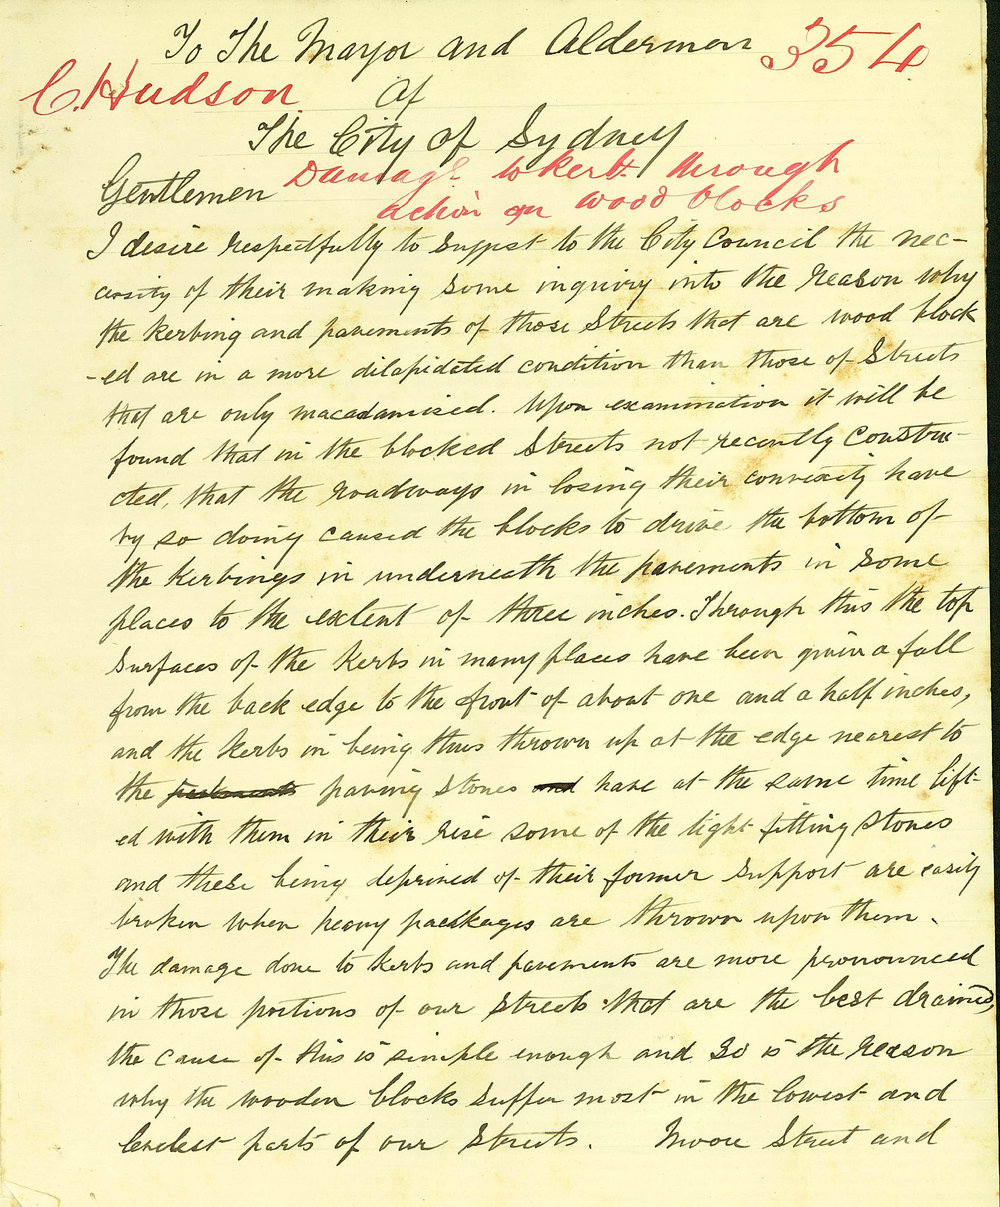 To The Mayor and Aldermen 354
C. Hudson Of
The City of Sydney
Gentlemen Damage to kerb. through
action on wood blocks
I desire respectfully to suggest to the City Council the nec-
essity of their making some inquiry into the reason why
the kerbing and pavements of those Streets that are wood block
-ed are in a more dilapidated condition than those of Streets
that are only macadamised. Upon examination it will be
found that in the blocked Streets not recently constru-
cted, that the roadways in losing their convexity have
by so doing caused the blocks to drive the bottom of
the Kerbings in underneath the pavements in some
places to the extent of three inches. Through this the top
surfaces of the Kerbs in many places have been given a fall
from the back edge to the front of about one and a half inches,
and the Kerbs in being thus thrown up at the edge nearest to
the paving stones and have at the same time lift-
ed with them in their rise some of the tight fitting stones
and these being deprived of their former support are easily
broken when heavy packages are thrown upon them.
The damage done to Kerbs and pavements are more pronounced
in those portions of our Streets that are the best drained,
the cause of this is simple enough and so is the reason
why the wooden blocks suffer most in the lowest and
levelest parts of our Streets. Moore Street and